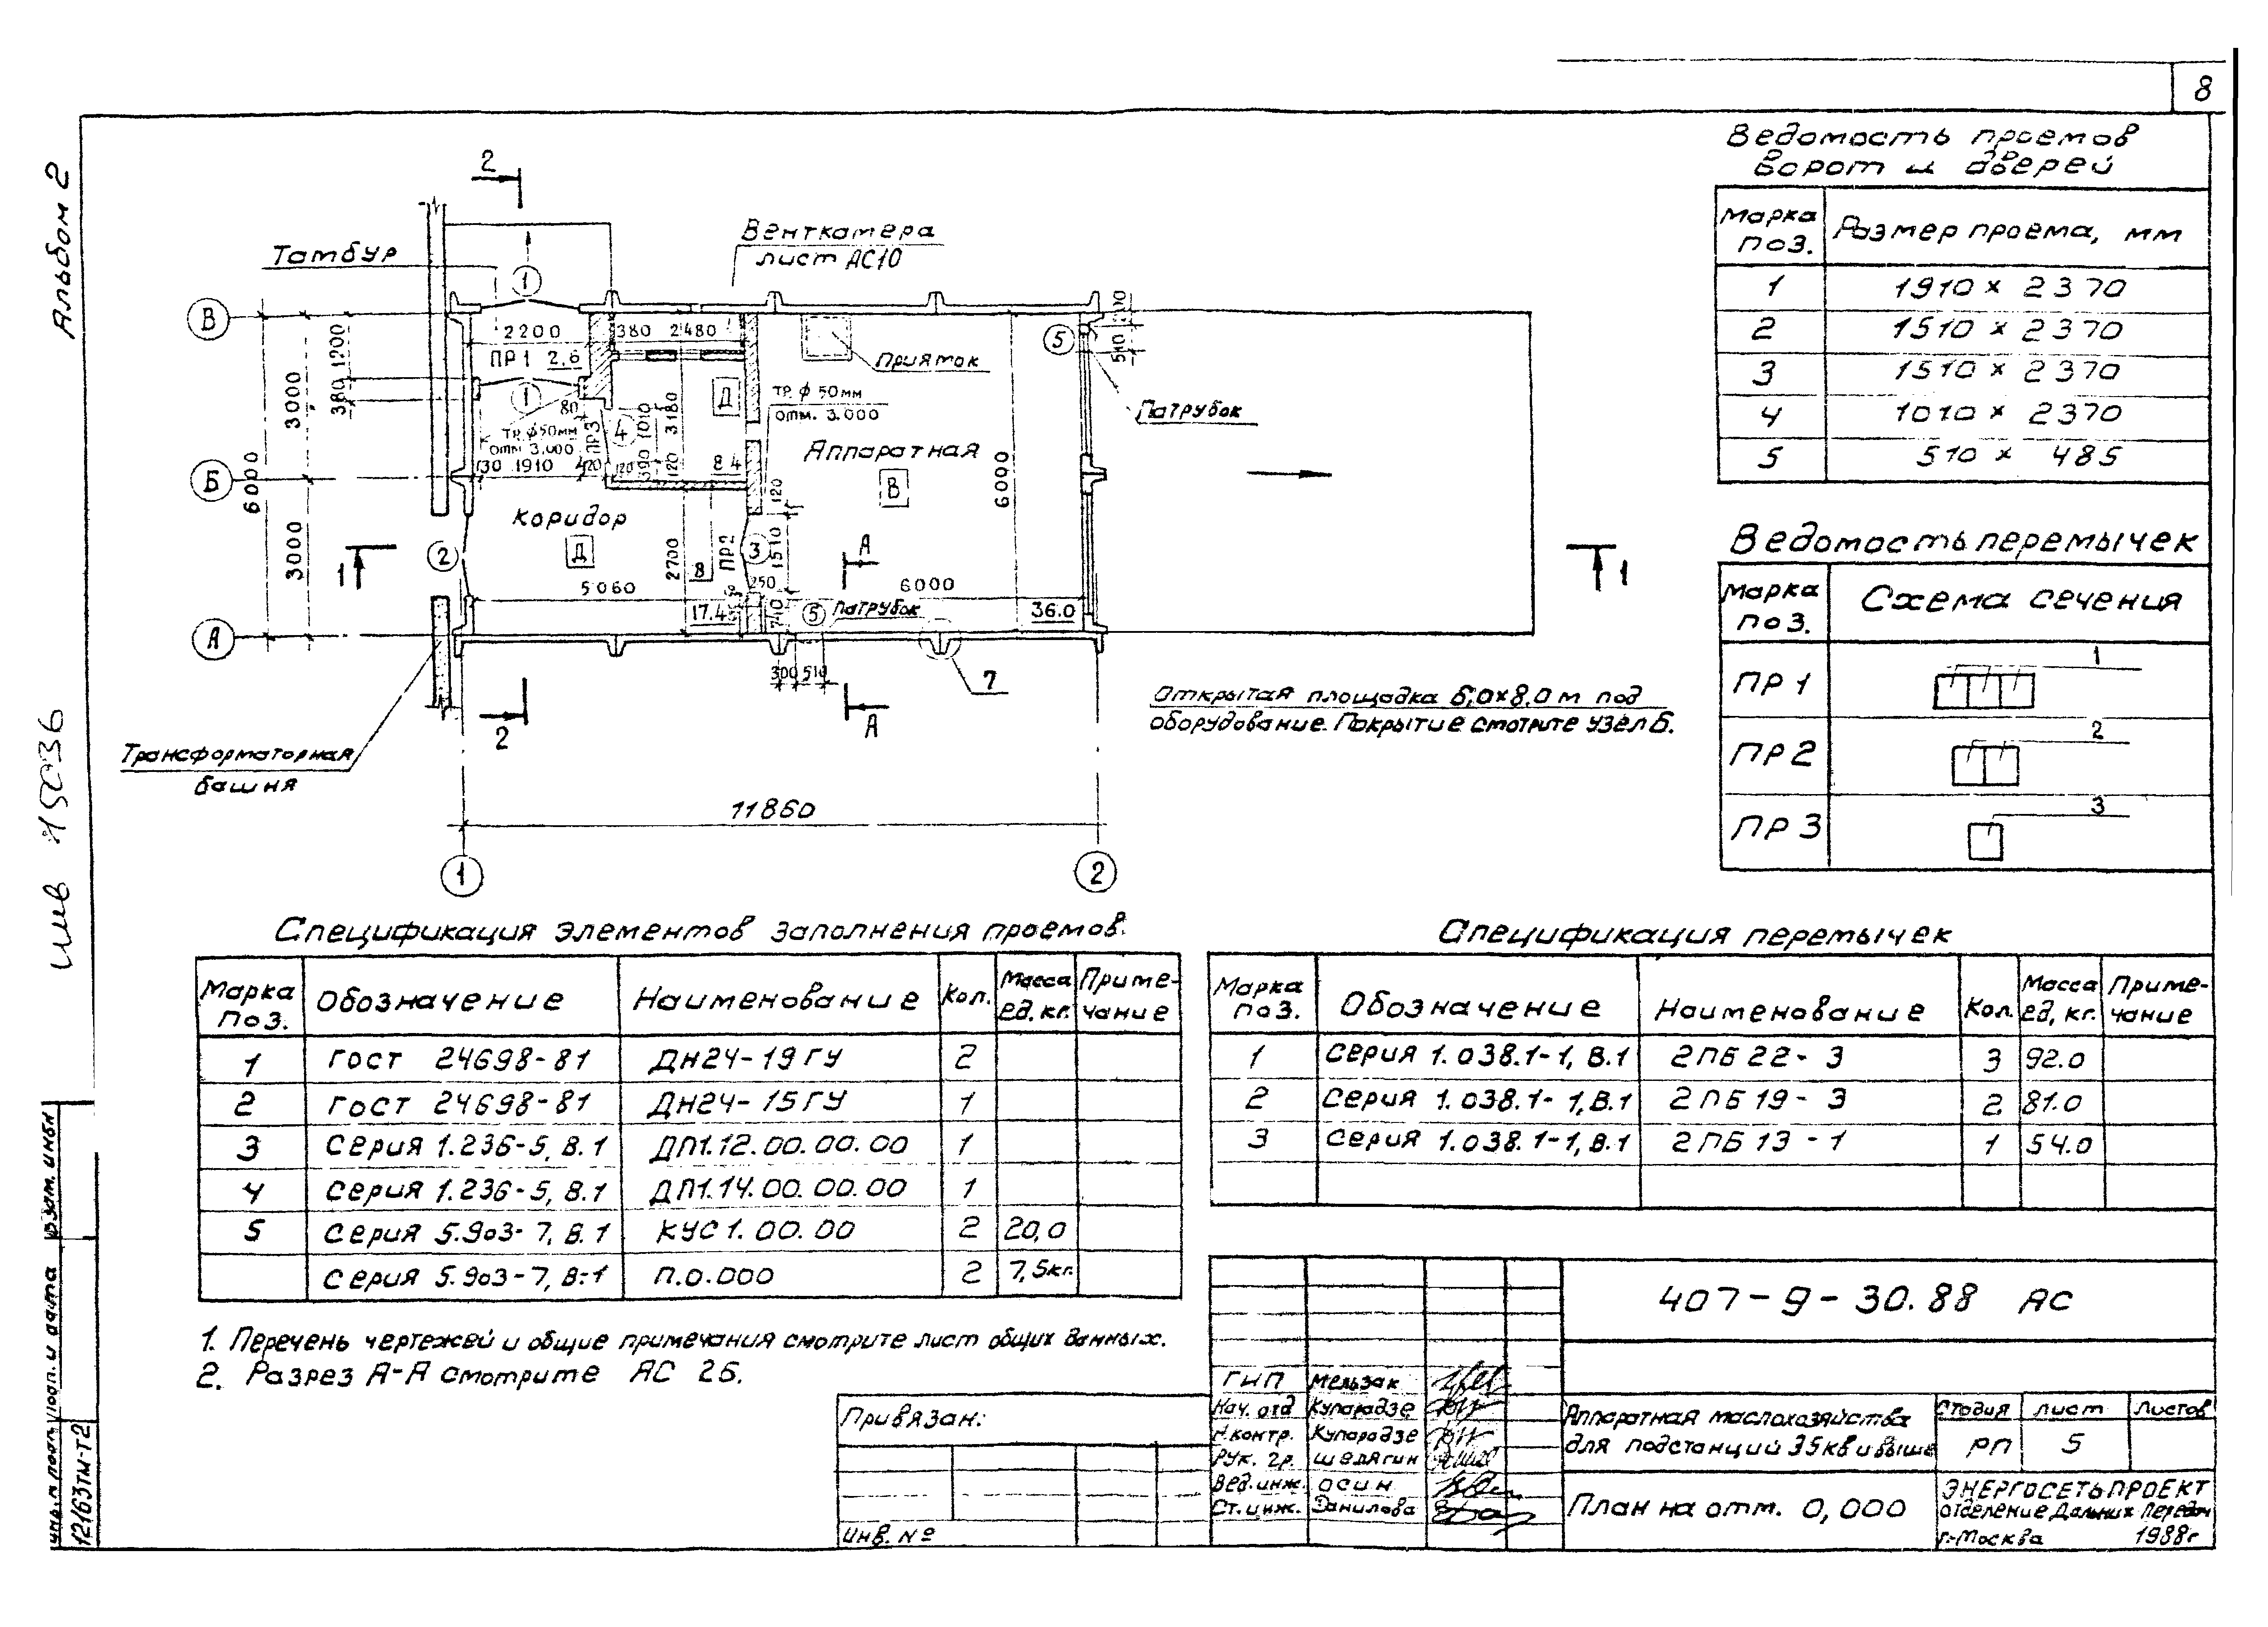 8
Альбом 2
инв 45036
Ведомость проемов
ворот и дверей
Марка поз. Размер проема, мм
1 1910 × 2370
2 1510 × 2370
3 1510 × 2370
4 1010 × 2370
5 510 × 485
Ведомость перемычек
Марка поз. Схема сечения
ПР 1 1
ПР 2 2
ПР 3 3
2
Тамбур
Венткамера
лист АС10
1
В
2200
380 2480
ПР1 2.6
Приямок
5
510
Патрубок
3000
380 1200
1
80
Тр. ф50мм
отм. 3.000
ПР3
4
1010
3180
Д
тр. ф 50мм
отм. 3.000
Аппаратная
В
6000
130 1910 420
120
390
120
8.4
Б
6000
3000
Коридор
Д
2
1
2700
8
ПР2
3
120
1510
А
250
5060
6000
17.4
740
5
Патрубок
36.0
1
А
300 510
7
2
А
Трансформаторная
башня
Открытая площадка 6,0×8,0 м под
оборудование. Покрытие смотрите узел Б.
11860
1
2
Спецификация элементов заполнения проемов.
Марка поз. Обозначение Наименование Кол. Масса ед. кг. Примечание
1 ГОСТ 24698-81 ДН24-19ГУ 2
2 ГОСТ 24698-81 ДН24-15ГУ 1
3 Серия 1.236-5, В.1 ДП1.12.00.00.00 1
4 Серия 1.236-5, В.1 ДП1.14.00.00.00 1
5 Серия 5.903-7, В.1 КУС1.00.00 2 20,0
Серия 5.903-7, В.1 П.0.000 2 7,5кг.
Спецификация перемычек
Марка поз. Обозначение Наименование Кол. Масса ед, кг. Примечание
1 Серия 1.038.1-1, В.1 2ПБ22-3 3 92.0
2 Серия 1.038.1-1, В.1 2ПБ19-3 2 81.0
3 Серия 1.038.1-1, В.1 2ПБ13-1 1 54.0
1. Перечень чертежей и общие примечания смотрите лист общих данных.
2. Разрез А-А смотрите АС 26.
Привязан:
Инв. №
407-9-30.88 АС
ГИП Мельзак
Нач. отд Купарадзе
Н.контр. Купарадзе
Рук. гр. Шедягин
Вед.инж. Осин
Ст.инж. Данилова
Аппаратная маслохозяйства
для подстанций 35кв и выше
Стадия Лист Листов
РП 5
План на отм. 0,000
ЭНЕРГОСЕТЬПРОЕКТ
Отделение Дальних Передач
г. Москва 1988г
Взам. инв №
Подп. и дата
Инв. № подл.
12163тм-т2